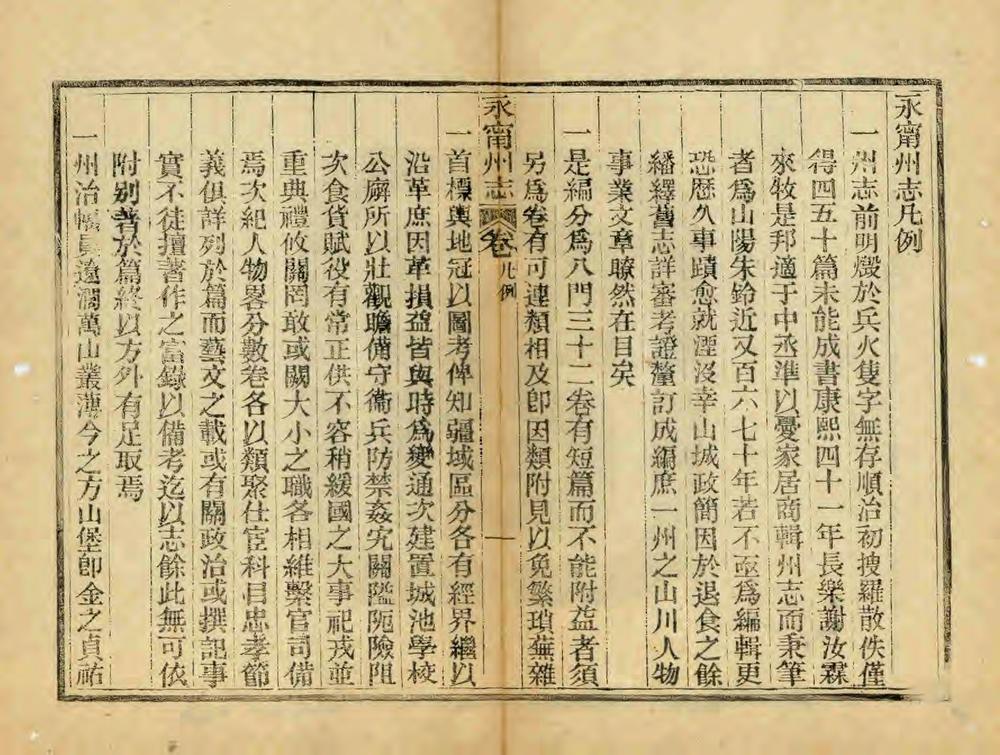 永甯州志凡例
一州志前明燬於兵火隻字無存順治初搜羅散佚僅
得四五十篇未能成書康熙四十一年長樂謝汝霖
來牧是邦適于中丞準以憂家居商輯州志而秉筆
者爲山陽朱鈴近又百六七十年若不亟爲編輯更
恐歴久事蹟愈就湮沒幸山城政簡因於退食之餘
繙繹舊志詳審考證釐訂成編庶一州之山川人物
事業文章瞭然在目矣
一是編分爲八門三十二卷有短篇而不能附益者須
另爲卷有可連類相及卽因類附見以免繁瑣蕪雜
永甯州志 卷 凡例 一
一首標輿地冠以圖考俾知疆域區分各有經界繼以
沿革庶因革損益皆與時爲變通次建置城池學校
公廨所以壯觀瞻備守衞兵防禁姦宄關隘阨險阻
次食貨賦役有常正供不容稍緩國之大事祀戎並
重典禮攸關罔敢或闕大小之職各相維繫官司備
焉次紀人物畧分數卷各以類聚仕宦科目忠孝節
義俱詳列於篇而藝文之載或有關政治或撰記事
實不徒擅著作之富錄以備考迄以志餘此無可依
附别著於篇終以方外有足取焉
一州治幅員遼濶萬山叢薄今之方山堡卽金之貞祐